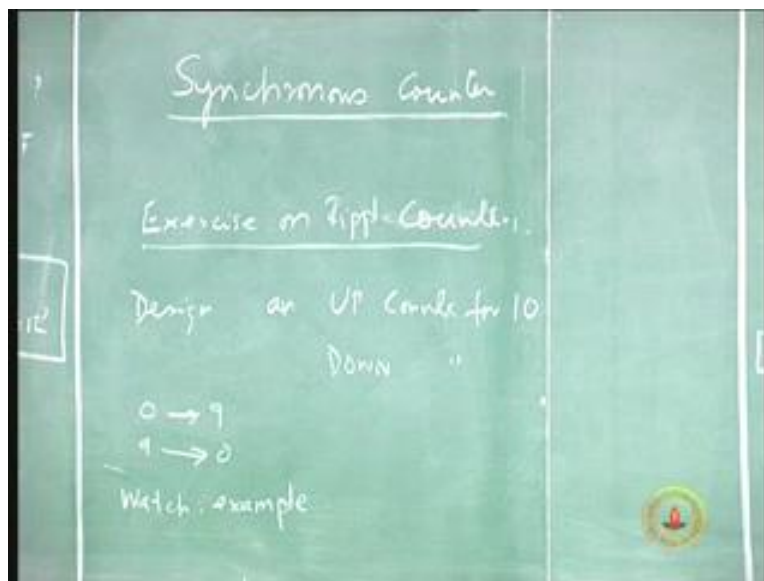 Synchronous Counter
Exercise on Ripple Counter.
Design an UP Counter for 10
DOWN "
0 → 9
9 → 0
Watch: example